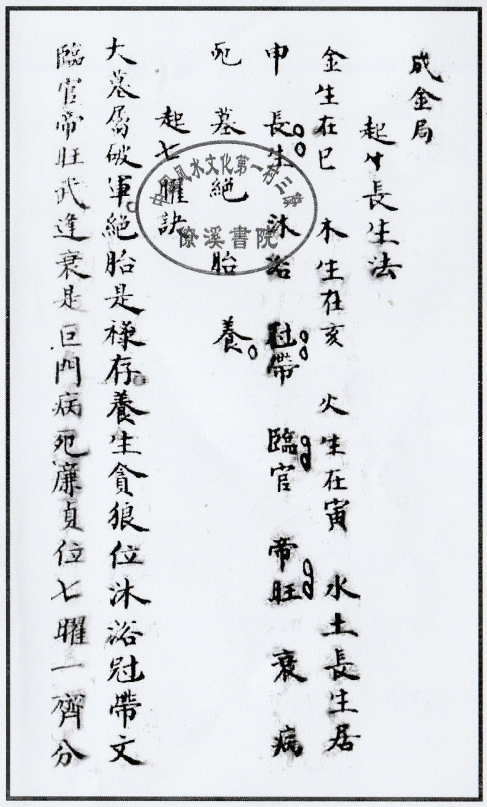 成金局
起十長生法
金生在巳 木生在亥 火生在寅 水土長生居
申 長生 沐浴 冠帶 臨官 帝旺 衰 病
死 墓 絕 胎 養
起七曜訣
大墓屬破軍絕胎是祿存養生貪狼位沐浴冠帶文
臨官帝旺武逢衰是巨門病死廉貞位七曜一齊分
中國風水文化第一村三寮
僚溪書院